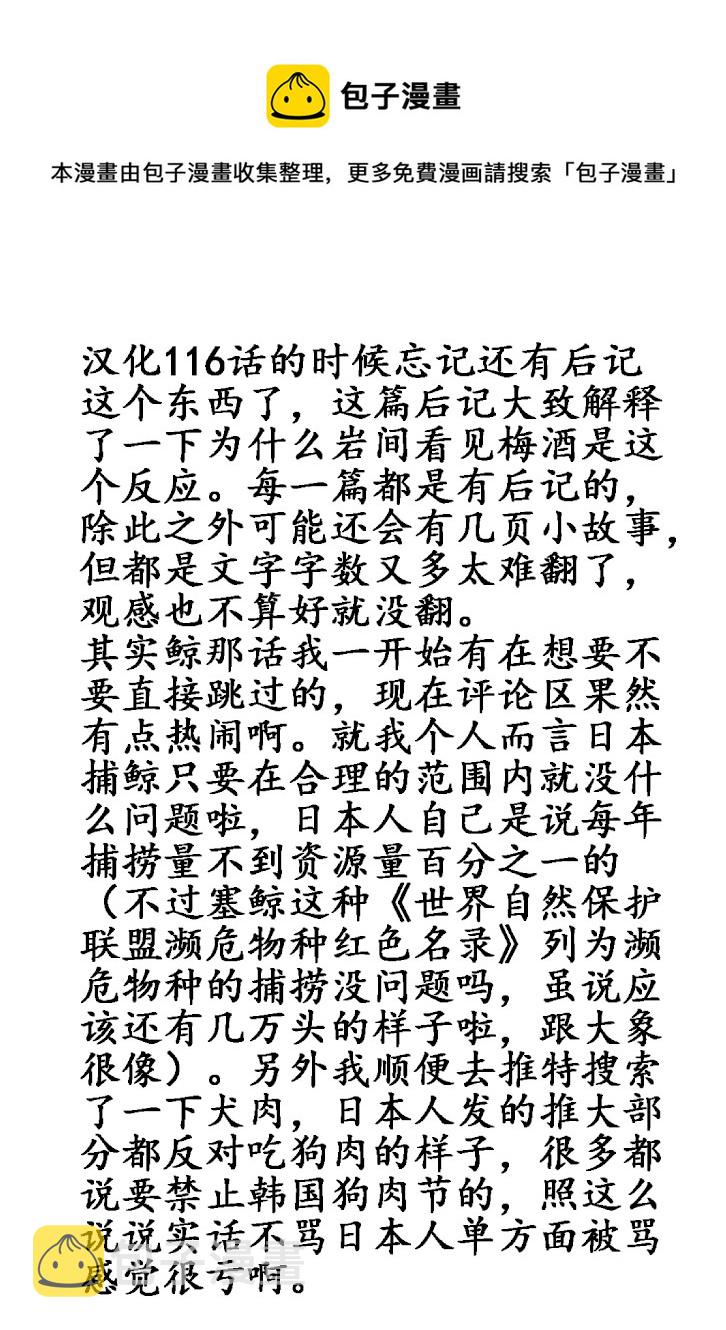 包子漫畫
本漫畫由包子漫畫收集整理，更多免費漫画請搜索「包子漫畫」
汉化116话的时候忘记还有后记
这个东西了，这篇后记大致解释
了一下为什么岩间看见梅酒是这
个反应。每一篇都是有后记的，
除此之外可能还会有几页小故事，
但都是文字字数又多太难翻了，
观感也不算好就没翻。
其实鲸那话我一开始有在想要不
要直接跳过的，现在评论区果然
有点热闹啊。就我个人而言日本
捕鲸只要在合理的范围内就没什
么问题啦，日本人自己是说每年
捕捞量不到资源量百分之一的
（不过塞鲸这种《世界自然保护
联盟濒危物种红色名录》列为濒
危物种的捕捞没问题吗，虽说应
该还有几万头的样子啦，跟大象
很像）。另外我顺便去推特搜索
了一下犬肉，日本人发的推大部
分都反对吃狗肉的样子，很多都
说要禁止韩国狗肉节的，照这么
说说实话不骂日本人单方面被骂
感觉很亏啊。
包子漫畫